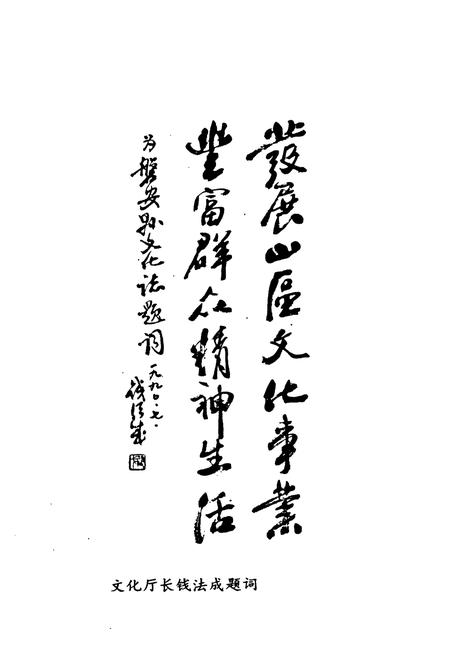 發展山區文化事業
豐富群众精神生活
为磐安县文化志题词
一九九〇·七·
钱法成
文化厅长钱法成题词